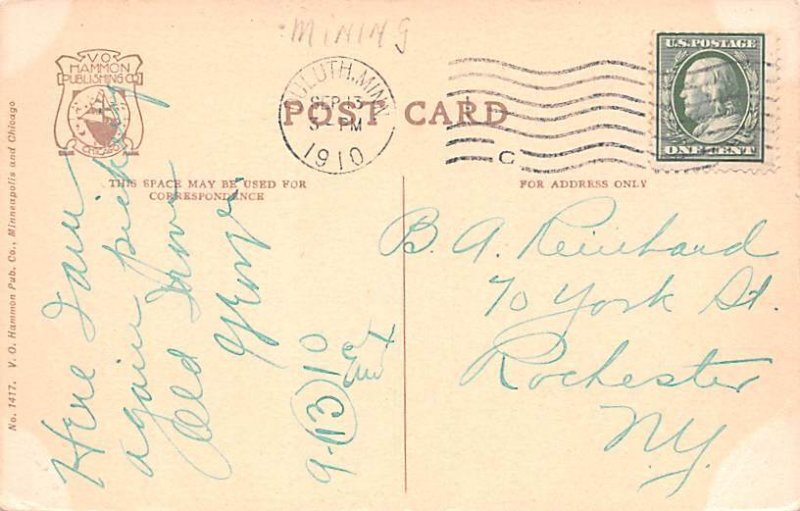 MINING
V.O.
HAMMON
PUBLISHING CO.
CHICAGO
DULUTH, MINN.
SEP 13
PM
1910
C
POST CARD
U.S. POSTAGE
ONE CENT
THIS SPACE MAY BE USED FOR
CORRESPONDENCE
FOR ADDRESS ONLY
No. 1417. V. O. Hammon Pub. Co., Minneapolis and Chicago
Here I am
again
old
9-13-10
B. A. Reinhard
70 York St.
Rochester
NY.